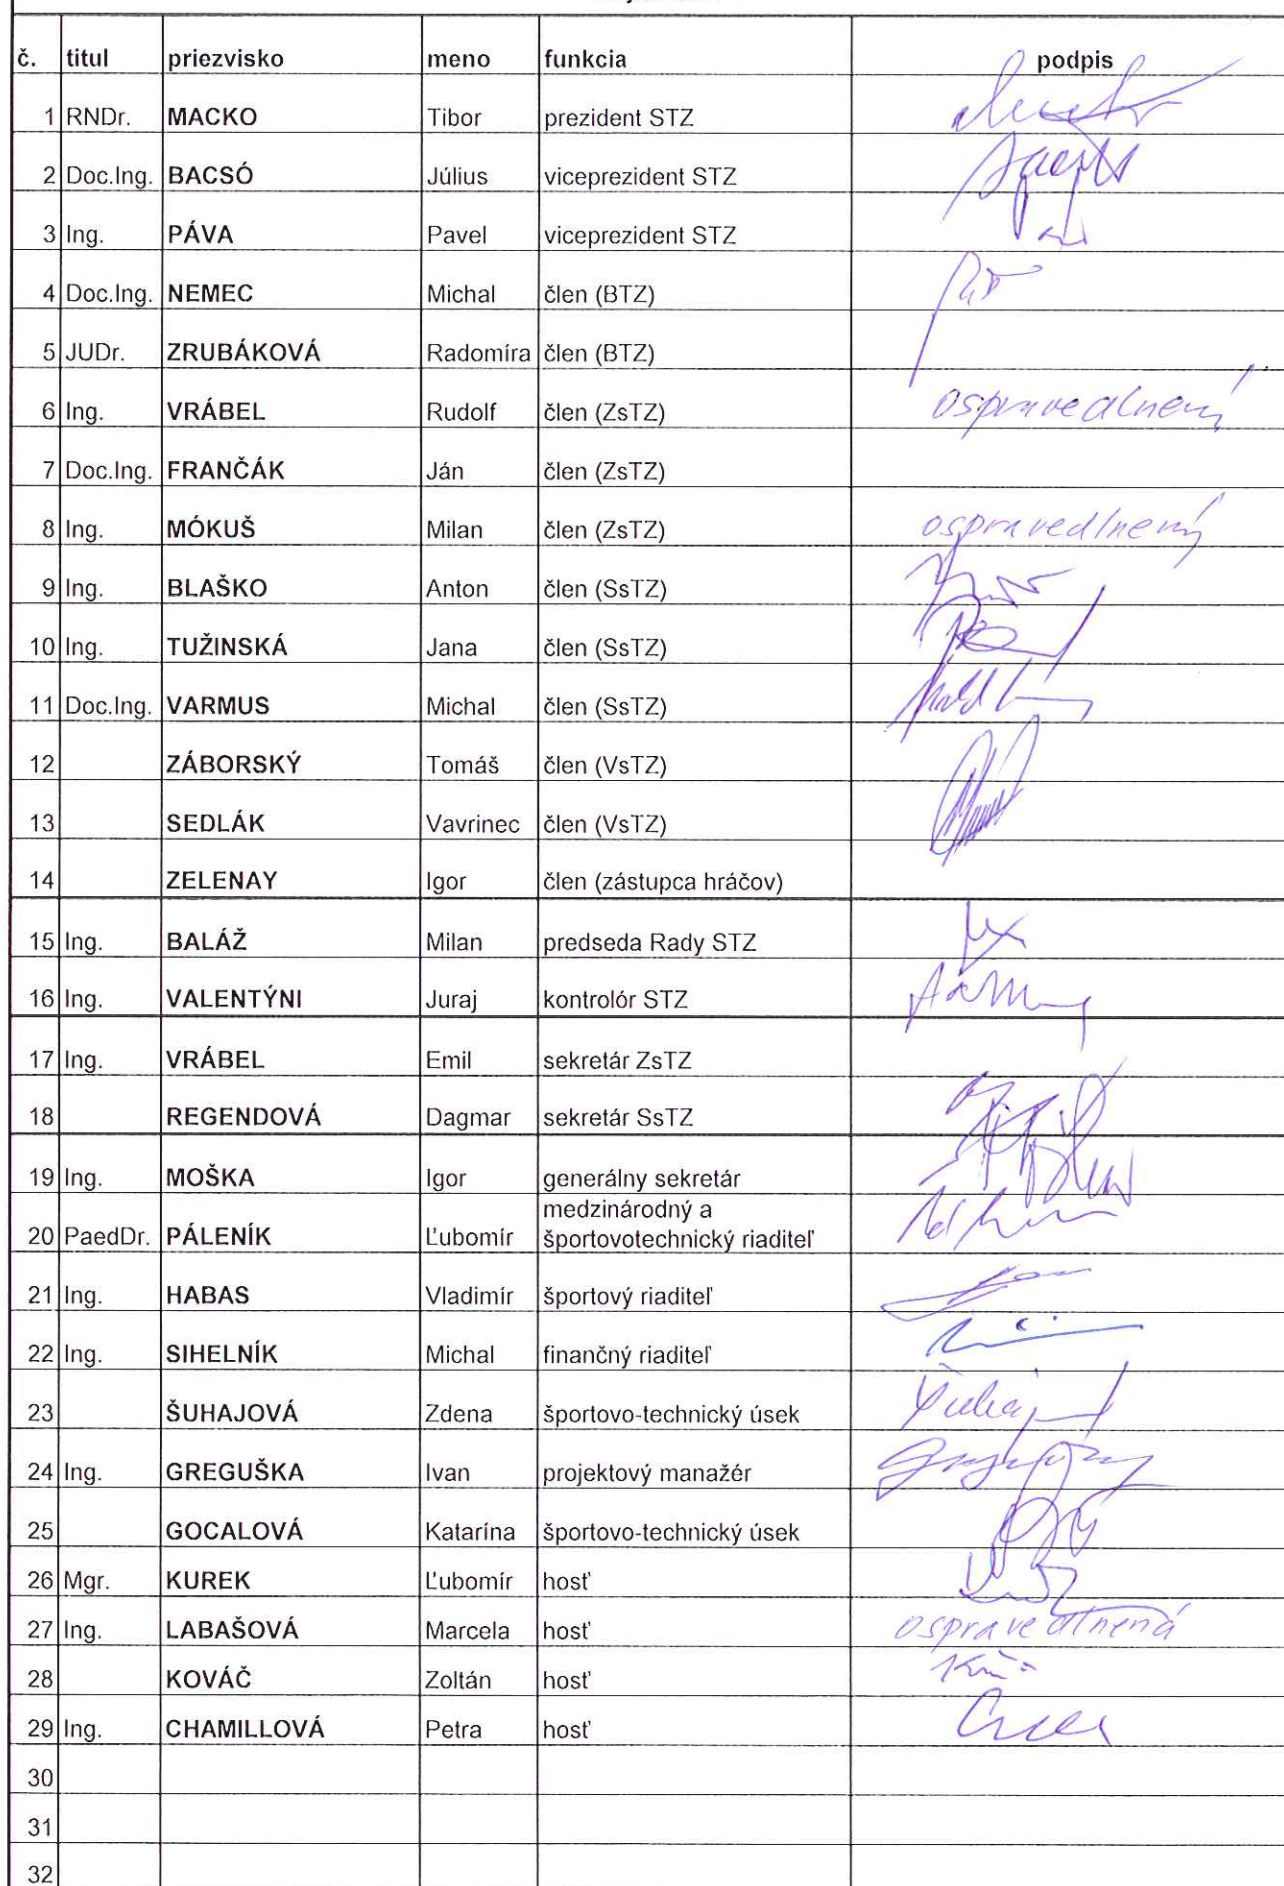 č. titul priezvisko meno funkcia podpis
1 RNDr. MACKO Tibor prezident STZ
2 Doc.Ing. BACSÓ Július viceprezident STZ
3 Ing. PÁVA Pavel viceprezident STZ
4 Doc.Ing. NEMEC Michal člen (BTZ)
5 JUDr. ZRUBÁKOVÁ Radomíra člen (BTZ)
6 Ing. VRÁBEL Rudolf člen (ZsTZ) ospravedlnený
7 Doc.Ing. FRANČÁK Ján člen (ZsTZ)
8 Ing. MÓKUŠ Milan člen (ZsTZ) ospravedlnený
9 Ing. BLAŠKO Anton člen (SsTZ)
10 Ing. TUŽINSKÁ Jana člen (SsTZ)
11 Doc.Ing. VARMUS Michal člen (SsTZ)
12 ZÁBORSKÝ Tomáš člen (VsTZ)
13 SEDLÁK Vavrinec člen (VsTZ)
14 ZELENAY Igor člen (zástupca hráčov)
15 Ing. BALÁŽ Milan predseda Rady STZ
16 Ing. VALENTÝNI Juraj kontrolór STZ
17 Ing. VRÁBEL Emil sekretár ZsTZ
18 REGENDOVÁ Dagmar sekretár SsTZ
19 Ing. MOŠKA Igor generálny sekretár
medzinárodný a
20 PaedDr. PÁLENÍK Ľubomír športovotechnický riaditeľ
21 Ing. HABAS Vladimír športový riaditeľ
22 Ing. SIHELNÍK Michal finančný riaditeľ
23 ŠUHAJOVÁ Zdena športovo-technický úsek
24 Ing. GREGUŠKA Ivan projektový manažér
25 GOCALOVÁ Katarína športovo-technický úsek
26 Mgr. KUREK Ľubomír hosť
27 Ing. LABAŠOVÁ Marcela hosť ospravedlnená
28 KOVÁČ Zoltán hosť
29 Ing. CHAMILLOVÁ Petra hosť
30
31
32